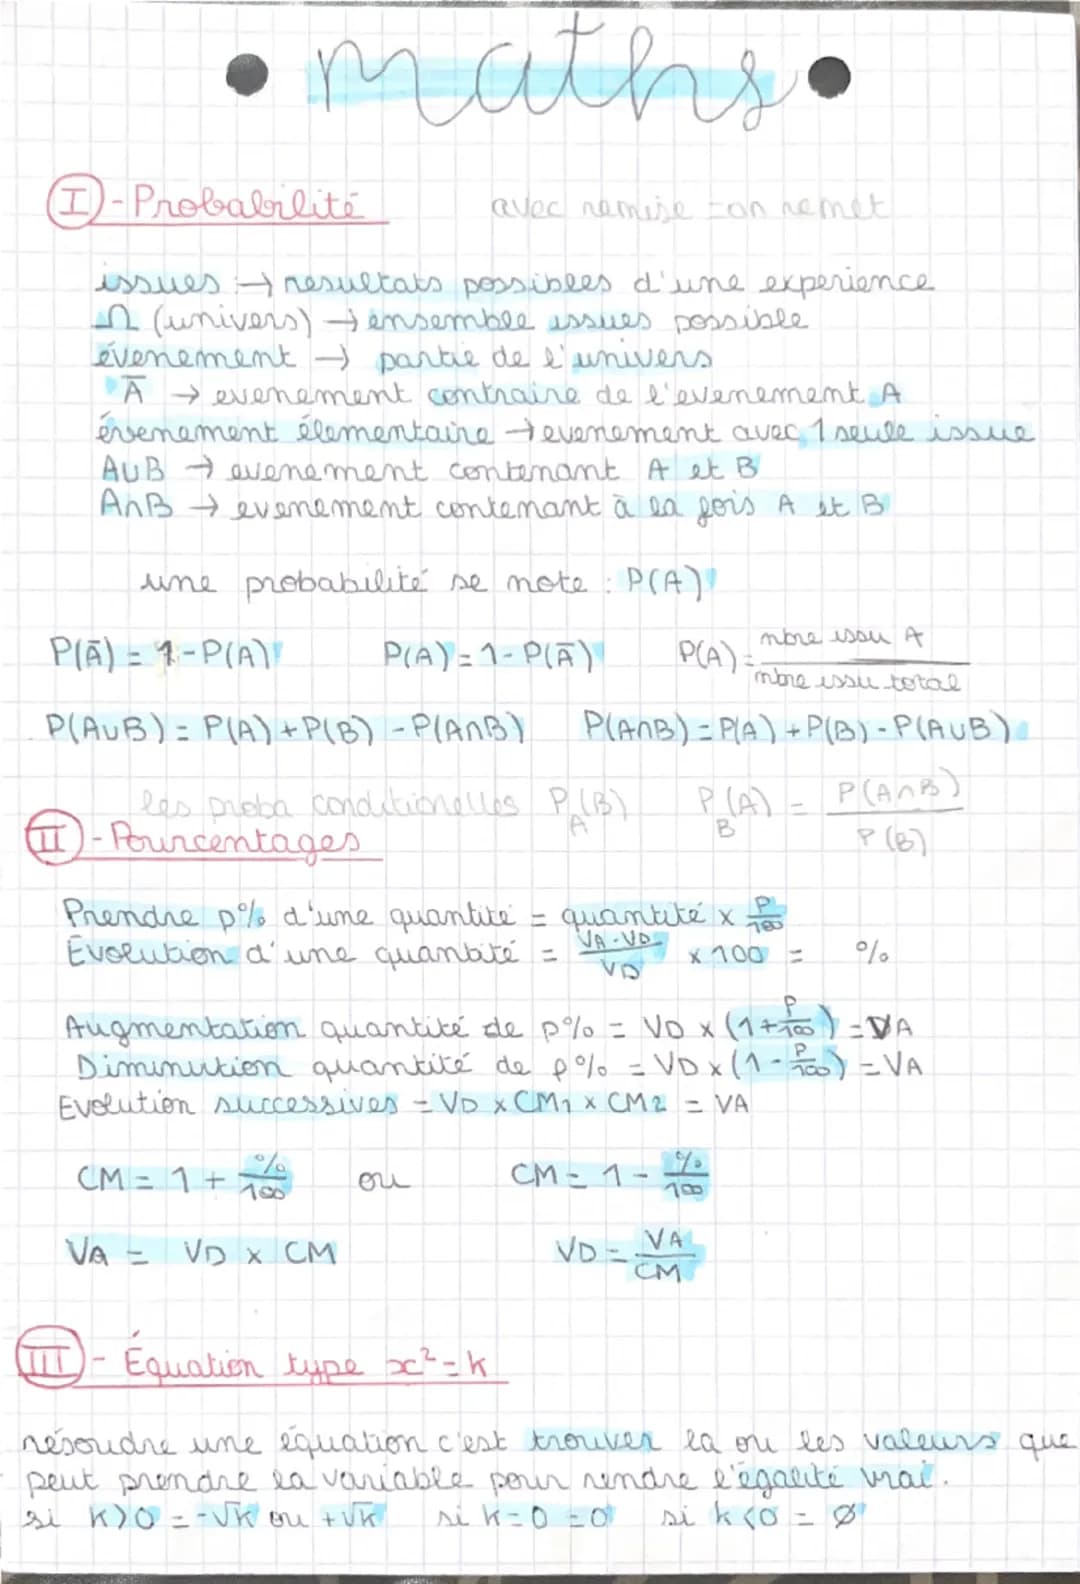 maths
I - Probabilité
avec remise = on remet
issues → resultats possibles d'une experience
Ω (univers) → ensemble issues possible
évenement → partie de l'univers
Ā → evenement contraire de l'evenement A
évenement élementaire → evenement avec 1 seule issue
A∪B → evenement contenant A et B
A∩B → evenement contenant à la fois A et B
une probabilité se note : P(A)
P(Ā) = 1 - P(A) P(A) = 1 - P(Ā) P(A) = nbre issu A / nbre issu total
P(A∪B) = P(A) + P(B) - P(A∩B) P(A∩B) = P(A) + P(B) - P(A∪B)
les proba conditionelles P_A(B) P_B(A) = P(A∩B) / P(B)
II - Pourcentages
Prendre p% d'une quantité = quantité x P/100
Évolution d'une quantité = VA - VD / VD x 100 = %
Augmentation quantité de p% = VD x (1 + P/100) = VA
Diminution quantité de p% = VD x (1 - P/100) = VA
Evolution successives = VD x CM1 x CM2 = VA
CM = 1 + %/100 ou CM = 1 - %/100
VA = VD x CM VD = VA/CM
III - Équation type x² = k
résoudre une équation c'est trouver la ou les valeurs que
peut prendre la variable pour rendre l'égalité vrai.
si k>0 = -√k ou +√k si k=0 = 0 si k<0 = Ø